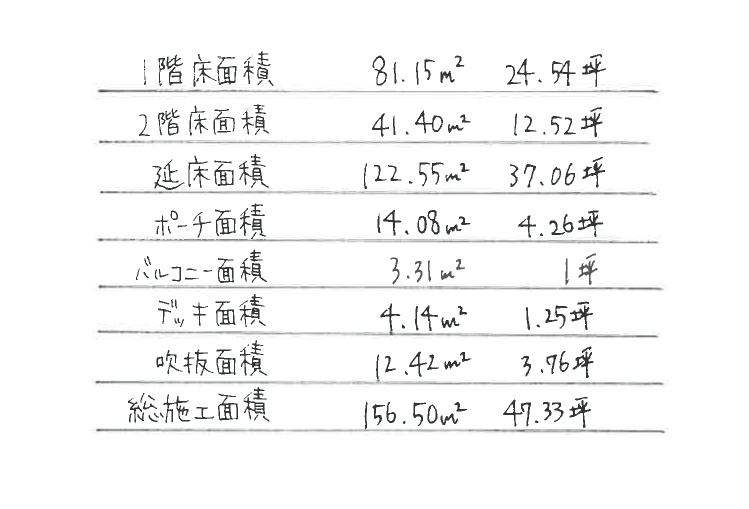 1階床面積 81.15m² 24.54坪
2階床面積 41.40m² 12.52坪
延床面積 122.55m² 37.06坪
ポーチ面積 14.08m² 4.26坪
バルコニー面積 3.31m² 1坪
デッキ面積 4.14m² 1.25坪
吹抜面積 12.42m² 3.76坪
総施工面積 156.50m² 47.33坪